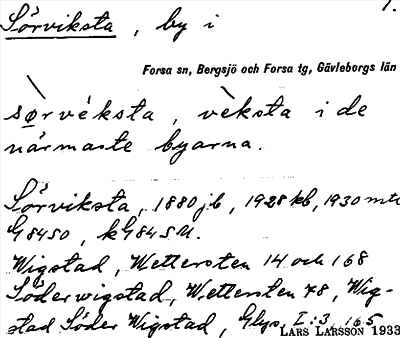 1.
Sörviksta, by i
Forsa sn, Bergsjö och Forsa tg, Gävleborgs län
sørvèksta, vèksta i de
närmaste byarna.
Sörviksta, 1880 jb, 1928 kb, 1930 mtl
G 84 SO, kG 84 S.U.
Wigstad, Wettersten 14 och 168
Söderwigstad, Wettersten 48, Wig-
stad Söder Wigstad, Glys. I:3, 165
LARS LARSSON 1933